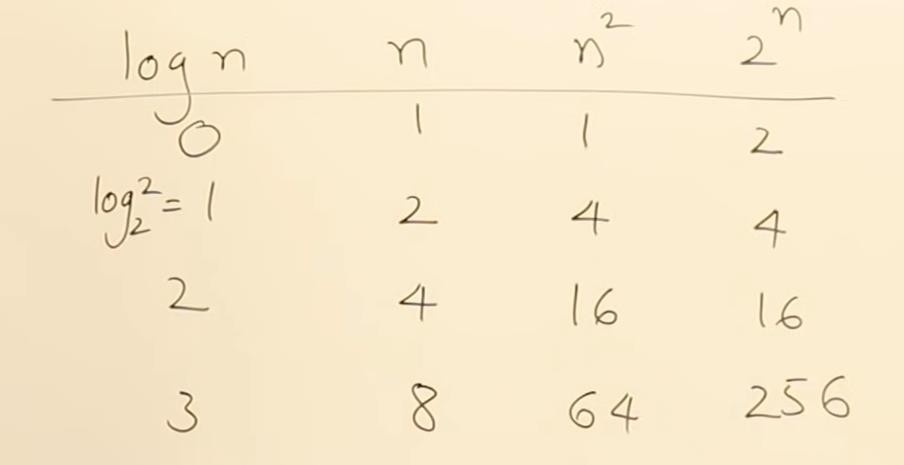 log n n n² 2ⁿ
0 1 1 2
log₂² = 1 2 4 4
2 4 16 16
3 8 64 256